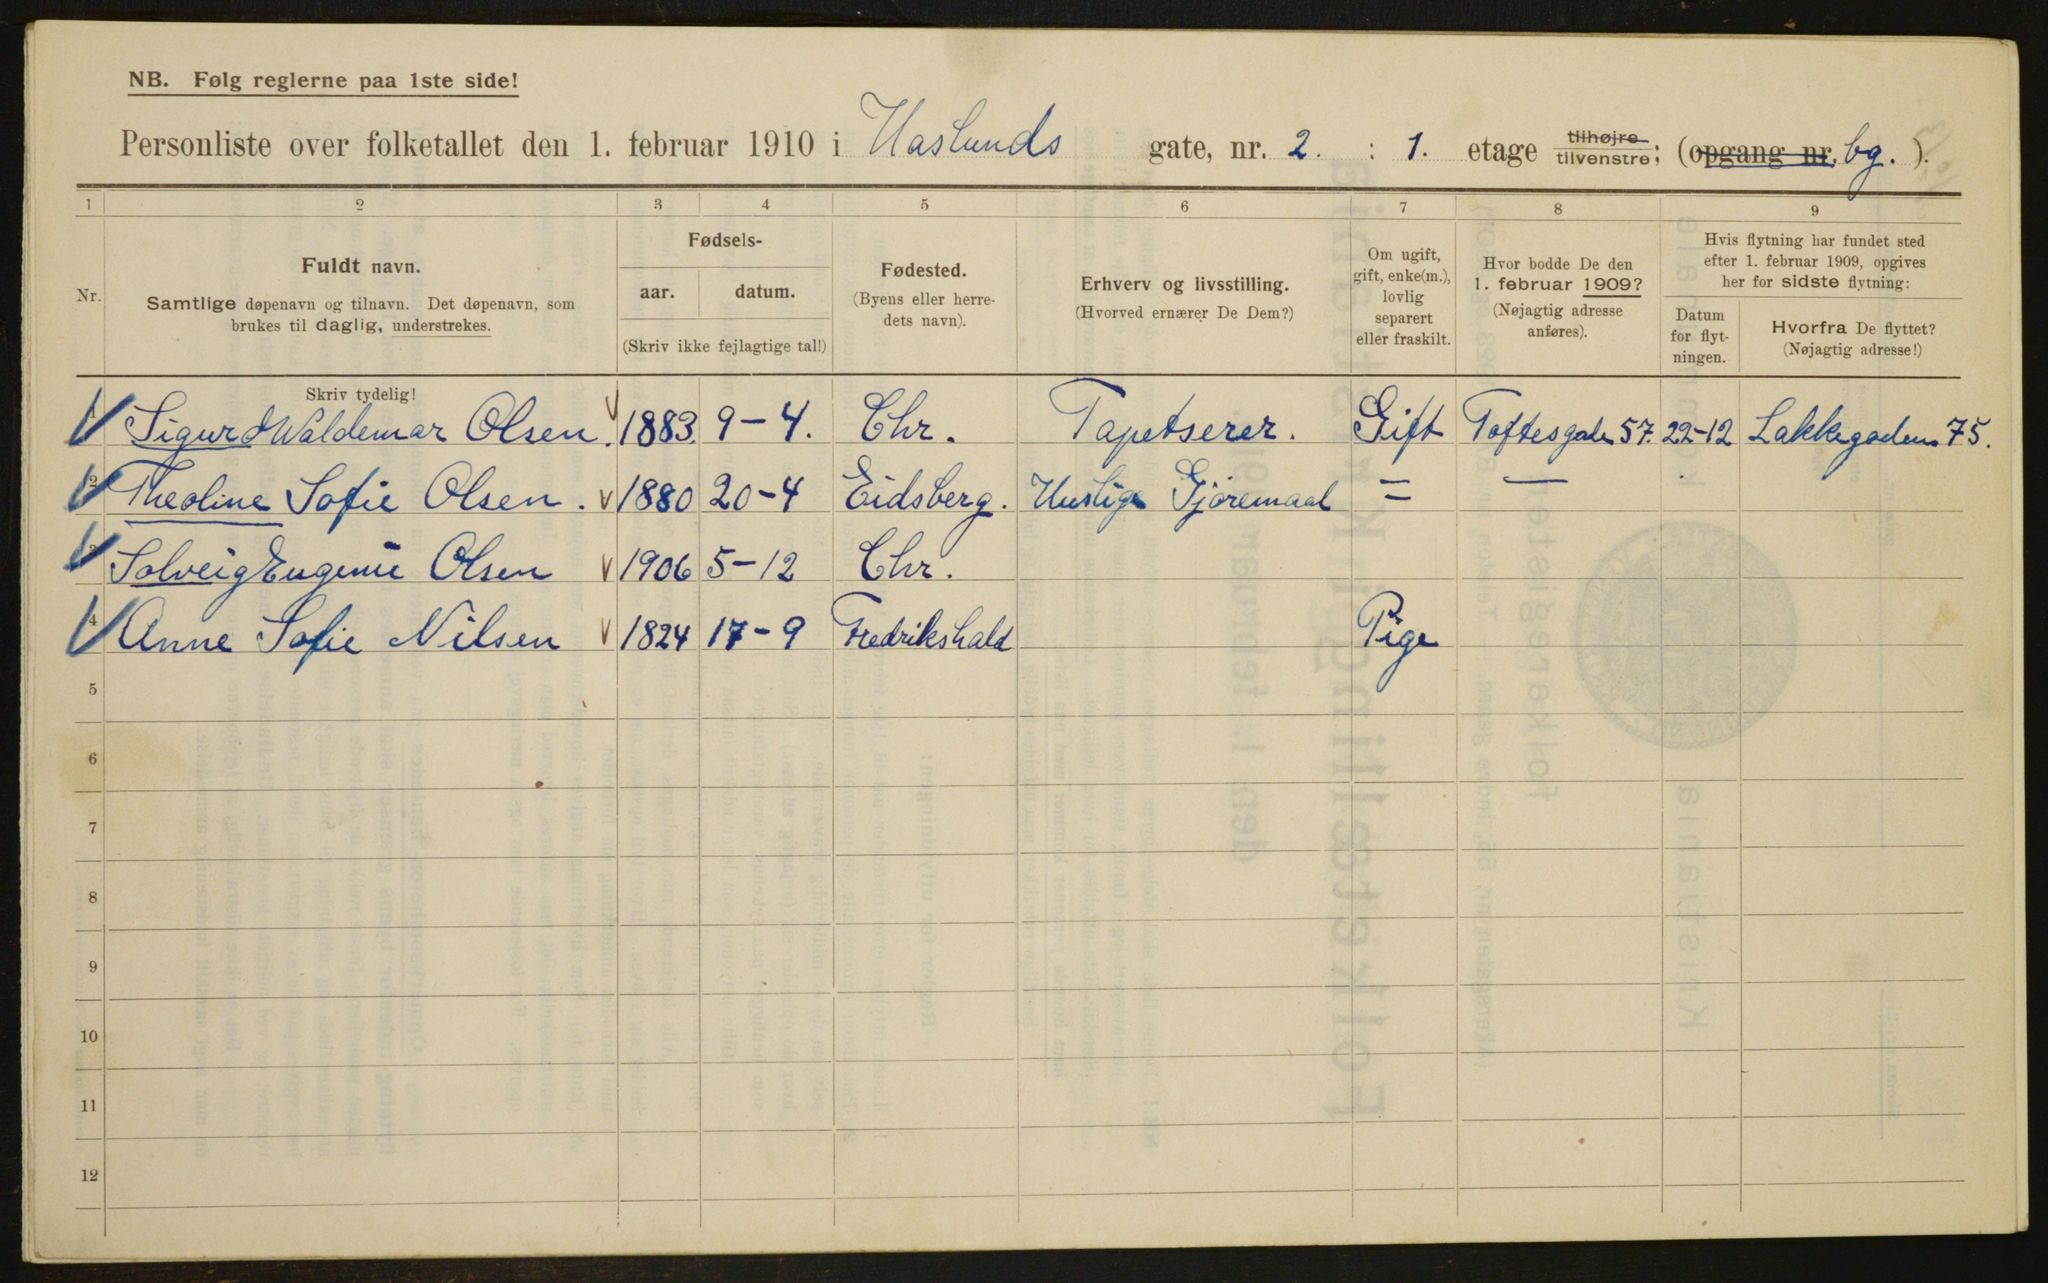 NB. Følg reglerne paa 1ste side!
Personliste over folketallet den 1. februar 1910 i Haslunds gate, nr. 2. : 1. etage tilhøjre tilvenstre; (opgang nr. bg. ).
1 2 3 4 5 6 7 8 9
Nr.
Fuldt navn.
Samtlige døpenavn og tilnavn. Det døpenavn, som
brukes til daglig, understrekes.
Fødsels-
aar. datum.
(Skriv ikke fejlagtige tal!)
Fødested.
(Byens eller herre-
dets navn).
Erhverv og livsstilling.
(Hvorved ernærer De Dem?)
Om ugift,
gift, enke(m.),
lovlig
separert
eller fraskilt.
Hvor bodde De den
1. februar 1909?
(Nøjagtig adresse
anføres).
Hvis flytning har fundet sted
efter 1. februar 1909, opgives
her for sidste flytning:
Datum
for flyt-
ningen.
Hvorfra De flyttet?
(Nøjagtig adresse!)
Skriv tydelig!
Sigurd Waldemar Olsen. 1883. 9-4. Chr. Tapetserer. Gift Toftesgade 57. 22-12 Lakkegaden 75.
2 Theoline Sofie Olsen. 1880 20-4 Eidsberg. Huslige Gjøremaal = —
3 Solveig Eugenie Olsen 1906 5-12 Chr.
4 Anne Sofie Nilsen 1824 17-9 Fredrikshald Pige
5
6
7
8
9
10
11
12